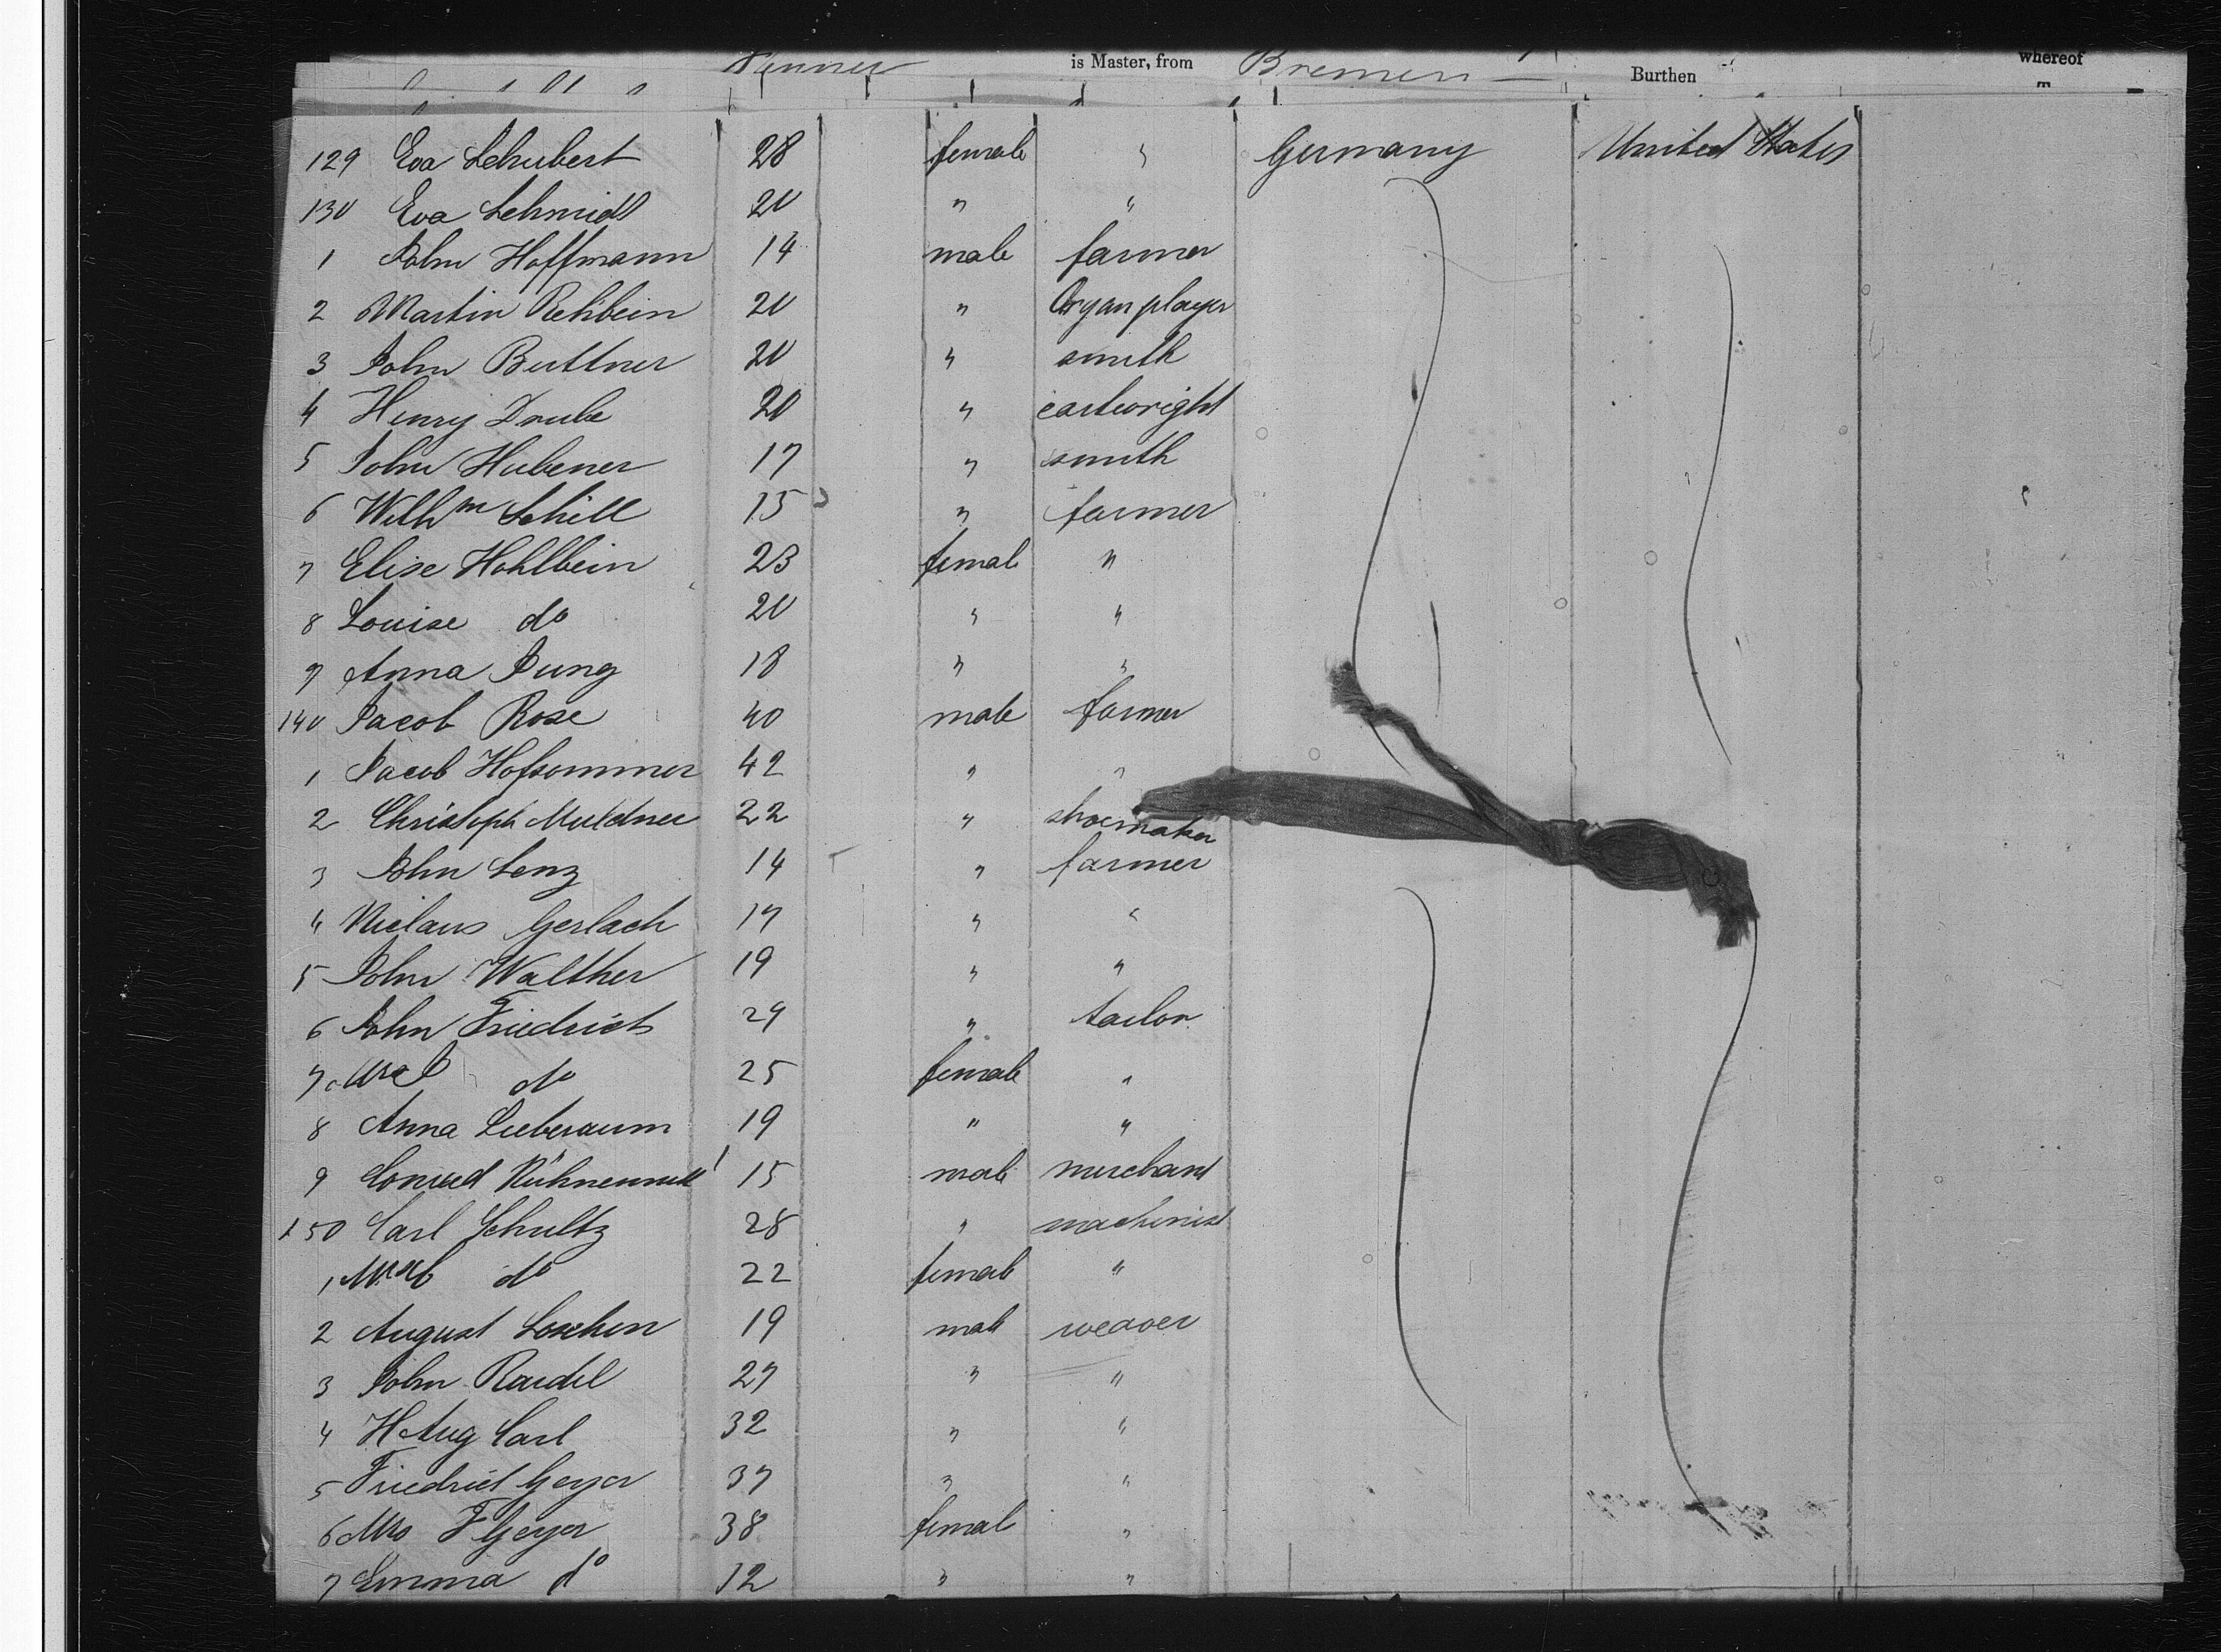 is Master, from Bremen Burthen whereof
129 Eva Schubert 28 female " Germany United States
130 Eva Schmidt 20 " "
1 John Hoffmann 14 male farmer
2 Martin Rehbein 20 " Organ player
3 John Buttner 20 " smith
4 Henry Drube 20 " cartwright
5 John Hubener 17 " smith
6 Wilhm Schill 15 " farmer
7 Elise Hohlbein 23 female "
8 Louise do 20 " "
9 Anna Jung 18 " "
140 Jacob Rose 40 male farmer
1 Jacob Hofsommer 42 " "
2 Christoph Muldner 22 " shoemaker
3 John Lenz 14 " farmer
4 Niclaus Gerlach 17 " "
5 John Walther 19 " "
6 John Friedrich 29 " tailor
7 do 25 female "
8 Anna 19 " "
9 Conrad 15 male merchant
150 Carl Schultz 28 " machinist
1 Mrs C do 22 female "
2 August Loschen 19 male weaver
3 John Raudel 27 " "
4 H Aug Carl 32 " "
5 Friedrich Geyer 37 " "
6 Mrs F Geyer 38 female "
7 Emma do 12 " "